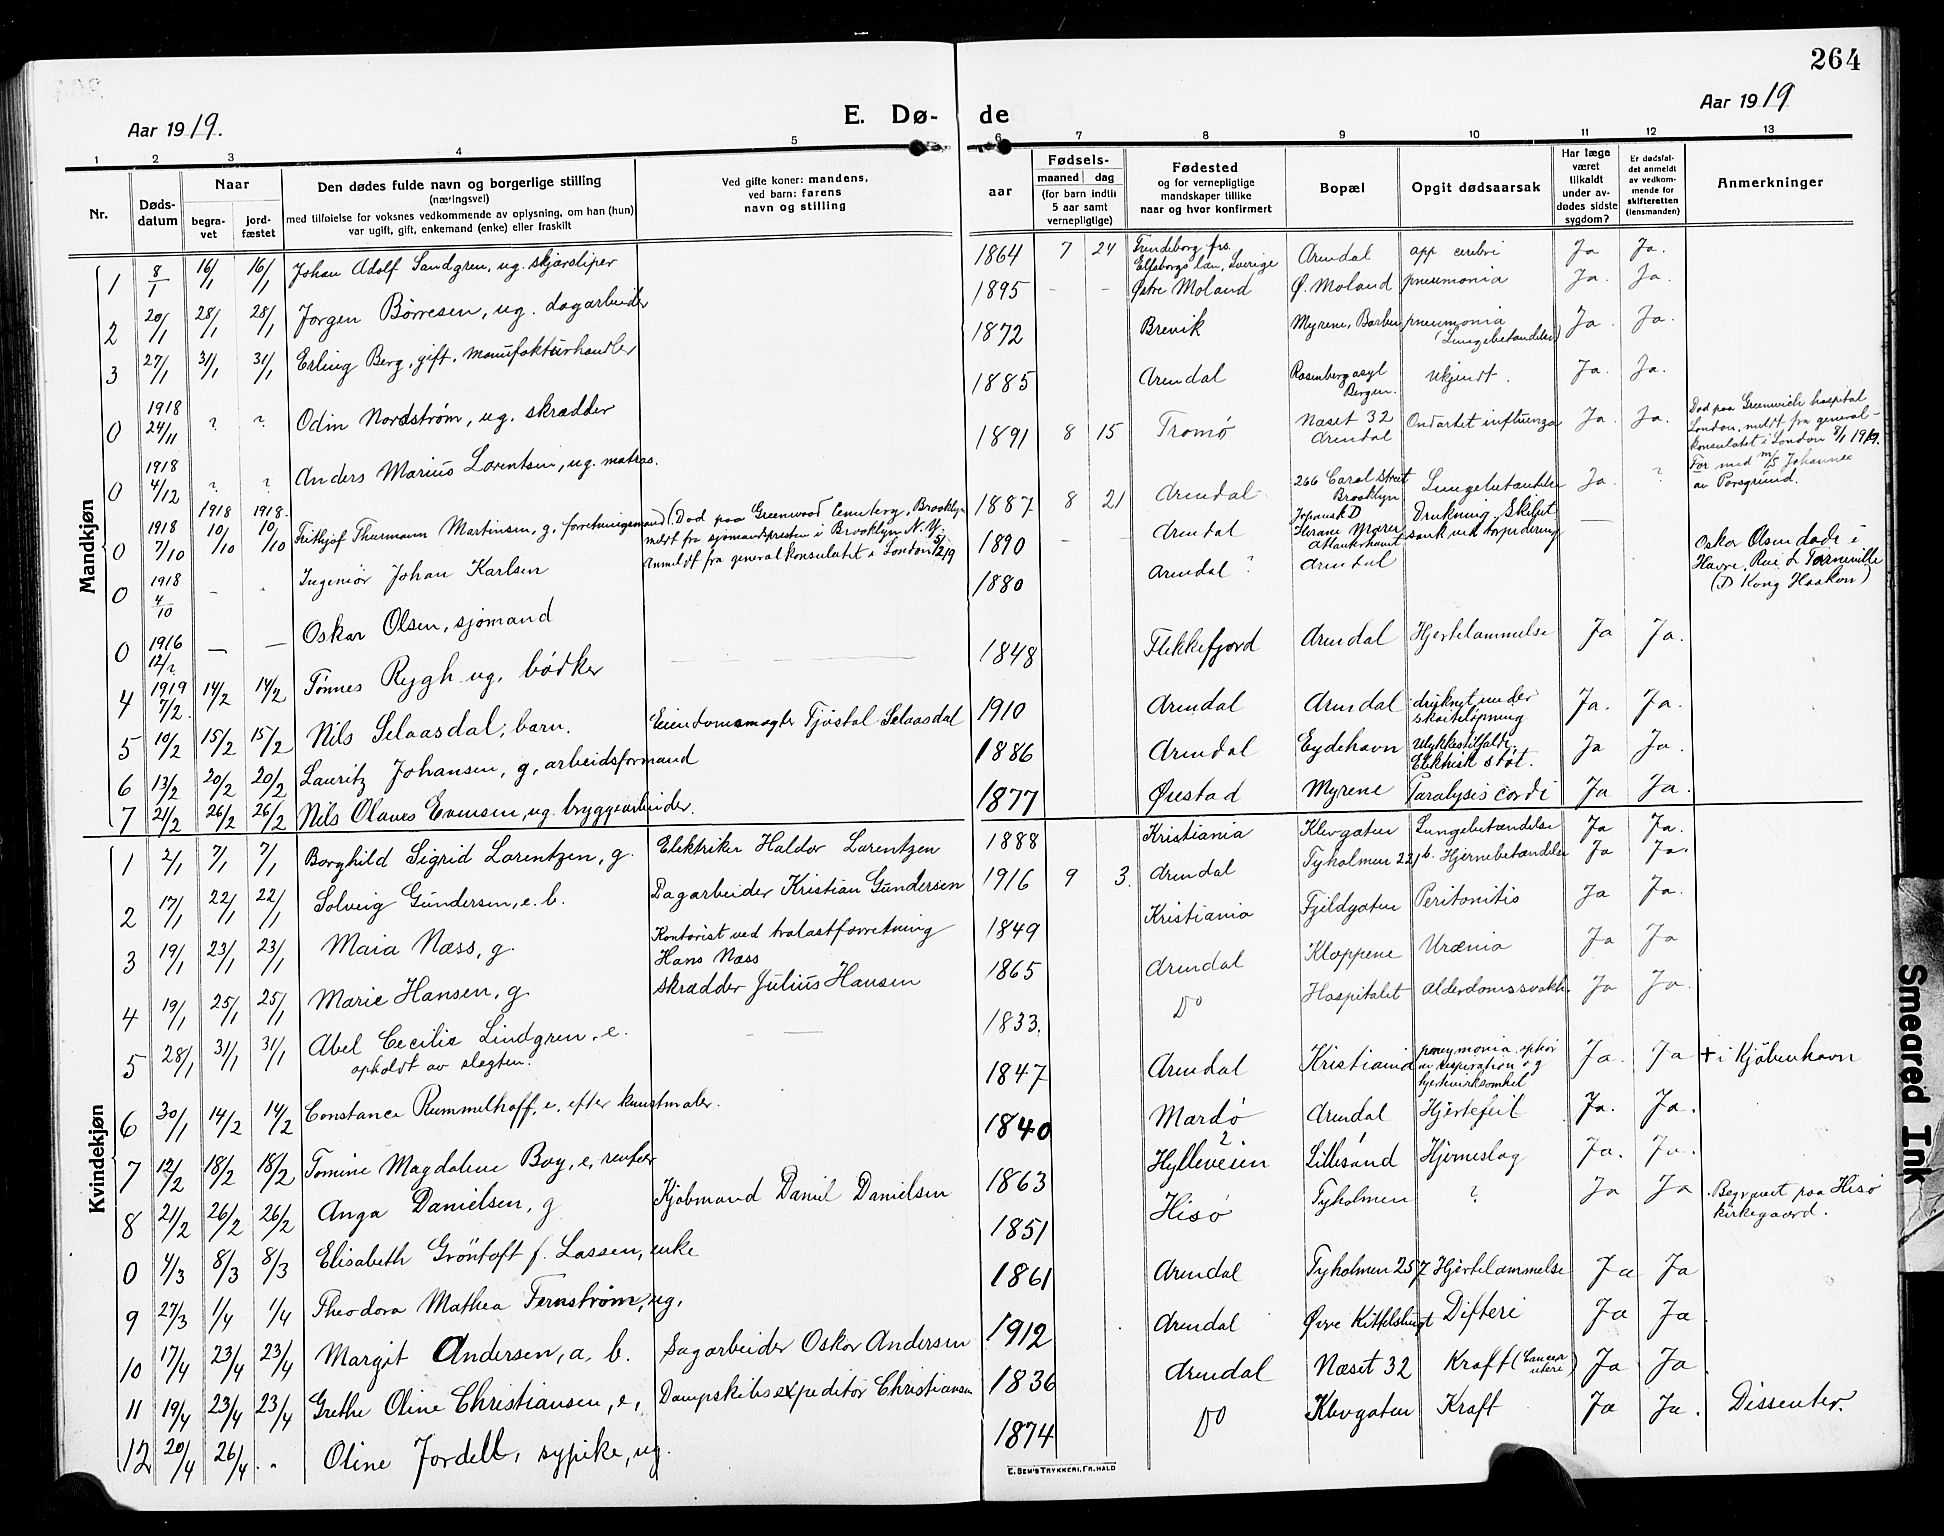 264
Aar 1919.
E. Dø-
de
Aar 1919
1 2 3 4 5 6 7 8 9 10 11 12 13
Nr.
Døds-
datum
Naar
begra-
vet
jord-
fæstet
Den dødes fulde navn og borgerlige stilling
(næringsvei)
med tilføielse for voksnes vedkommende av oplysning, om han (hun)
var ugift, gift, enkemand (enke) eller fraskilt
Ved gifte koner: mandens,
ved barn: farens
navn og stilling
aar
Fødsels-
maaned dag
(for barn indtil
5 aar samt
vernepligtige)
Fødested
og for vernepligtige
mandskaper tillike
naar og hvor konfirmert
Bopæl
Opgit dødsaarsak
Har læge
været
tilkaldt
under av-
dødes sidste
sygdom?
Er dødsfal-
det anmeldt
av vedkom-
mende for
skifteretten
(lensmanden)
Anmerkninger
Mandkjøn
1 8/1 16/1 16/1 Johan Adolf Sandgren, ug. skjærsliper 1864 7 24 Elfsborgs læn, Sverige Arendal app cerebri Ja Ja.
2 20/1 28/1 28/1 Jørgen Børresen, ug. dagarbeider 1895 - - Østre Moland Ø. Moland pneumonia Ja. Ja.
3 27/1 31/1 31/1 Erling Berg, gift. Manufakturhandler 1872 Brevik Myrene, Barbu pneumonia (Lungebetændelse) Ja. Ja.
0 1918 24/11 ? ? Odin Nordstrøm, ug. skrædder 1885 Arendal Rosenberg asyl Bergen. Ukjendt. Ja. Ja.
0 1918 4/12 ? ? Anders Marius Lorentsen, ug. matros. 1891 8 15 Tromø Næset 32 Arendal Ondartet influenza Ja. Ja. Død paa Greenwich hospital
London, meldt fra general-
konsulatet i London 8/1 1919.
Før med m/s Johanne
av Porsgrund.
0 1918 7/10 1918 10/10 1918. 10/10 Fritkjof Thurmann Martinsen, g, forretningsmand (Død paa Greenwood Cemetery, Brooklyn
meldt fra sjømandspresten i Brooklyn N.Y. 1887 8 21 Arendal 266 Carol Street Brooklyn Lungebetændelse Ja. ?
0 1918 4/10 - - Ingeniør Johan Karlsen Anmeldt fra generalkonsulatet i London 5/2 19 1890 Arendal Atlanterhavet Drukning. Skibet sank ved torpedering —
0 1916 12/? — — Oskar Olsen, sjømand 1880 Arendal ? Arendal Oskar Olsen døde i
Havre, Rue de Tourneville
(D Kong Haakon)
4 1919 7/2 14/2 14/2 Tønnes Rygh ug, bødker 1848 Flekkefjord Arendal Hjertelammelse Ja Ja.
5 10/2 15/2 15/2 Nils Selaasdal, barn. Eiendomsmægler Tjøstal Selaasdal 1910 Arendal Arendal druknet under skøiteløpning Ja. Ja.
6 13/2 20/2 20/2 Lauritz Johansen, g, arbeidsformand 1886 Arendal Eydehavn Ulykkestilfælde. Elektrisk støt. Ja Ja.
7 21/2 26/2 26/2 Nils Olaves Evensen, ug. bryggearbeider. 1877 Øiestad Myrene Paralysis cordi Ja Ja.
Kvindekjøn
1 2/1 7/1 7/1 Borghild Sigrid Lorentzen, g. Elektriker Haldor Lorentzen 1888 Kristiania Klevgaten Lungebetændelse Ja Ja.
2 17/1 22/1 22/1 Solveig Gundersen, e. b. Dagarbeider Kristian Gundersen 1916 9 3. Arendal Tyholmen 221 b. Hjernebetændelse Ja Ja.
3 19/1 23/1 23/1 Maia Næss, g. Kontorist ved trælastforretning
Hans Næss 1849 Kristiania Fjeldgaten Peritonitis Ja Ja.
4 19/1 25/1 25/1 Marie Hansen, g skrædder Julius Hansen 1865 Arendal Kloppene Urænia Ja Ja
5 28/1 31/1 31/1 Abel Cecilie Lindgren, e.
opholdt av slegten. 1833. Do Hospitalet Alderdomssvakh. Ja Ja.
6 30/1 14/2 14/2 Constance Rummelhoff, e, efter kunstmaler. 1847 Arendal Kristiania pneymonia ophør av respiration og hjertevirksomhet Ja. Ja + i Kjøbenhavn
7 12/2 18/2 18/2 Tomine Magdalene Boy, e, rentier 1840 Mardø Arendal Hjertefeil Ja. Ja.
8 21/2 26/2 26/2 Anga Danielsen, g Kjøbmand Daniel Danielsen 1863 Hylleveien ? Lillesand Hjerneslag Ja. Ja.
0 4/3 8/3 8/3 Elisabeth Grøntoft f. Lassen, enke 1851 Hisø Tyholmen ? Ja Ja Begravet paa Hisø
kirkegaard.
9 27/3 1/4 1/4 Theodora Mathea Fernstrøm, ug. 1861 Arendal Tyholmen 257 Hjertelammelse Ja Ja
10 17/4 23/4 23/4 Margit Andersen, a. b. Sagarbeider Oskar Andersen 1912 Arendal Øvre Kittelsbugt Difteri Ja Ja
11 19/4 23/4 23/4 Grethe Oline Christiansen, e, Dampskibsexpeditør Christiansen 1836 Arendal Næset 32 Kræft (Cancer uteri) Ja Ja
12 20/4 26/4 „ Oline Jordell, sypike, ug. 1874 Do Klevgaten Kræft Ja Ja. Dissenter.
E. SEM'S TRYKKERI, FR.HALD
Smeared Ink